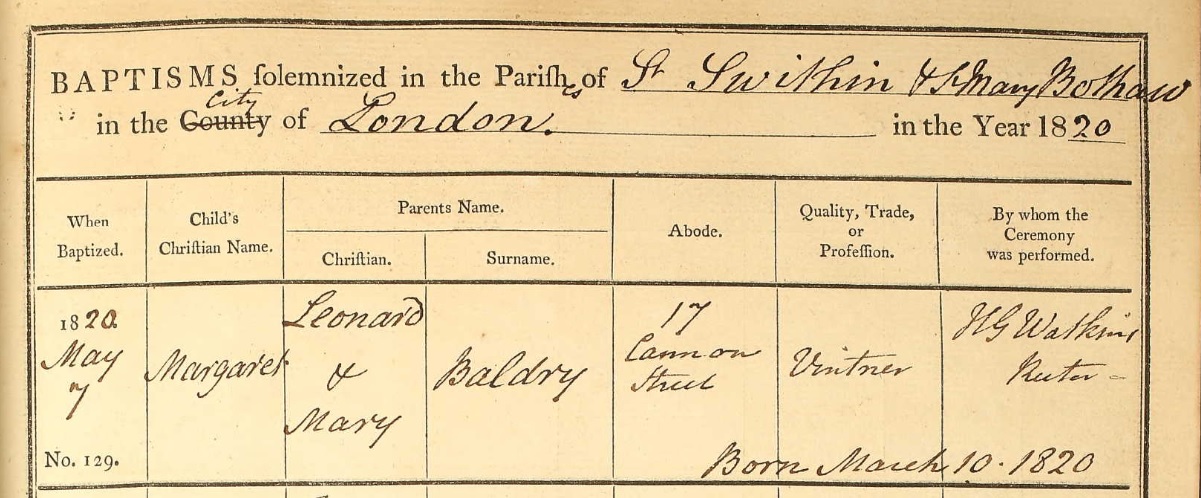 BAPTISMS ſolemnized in the Pariſhes of St Swithin & St Mary Bothaw
in the County City of London. in the Year 1820
When Baptized.
Child's Chriſtian Name.
Parents Name.
Chriſtian.
Surname.
Abode.
Quality, Trade, or Profeſſion.
By whom the Ceremony was performed.
1820.
May
7
Margaret
Leonard
&
Mary
Baldry
17
Cannon
Street
Vintner
HG Watkins
Rector
No. 129.
Born March 10. 1820